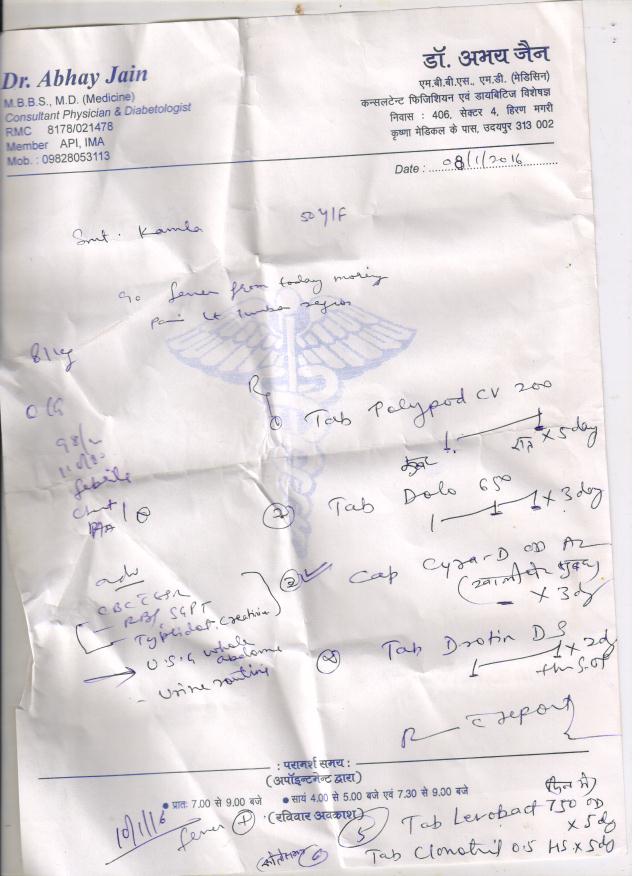 Dr. Abhay Jain
M.B.B.S., M.D. (Medicine)
Consultant Physician & Diabetologist
RMC 8178/021478
Member API, IMA
Mob. : 09828053113
डॉ. अभय जैन
एम.बी.बी.एस., एम.डी. (मेडिसिन)
कन्सलटेन्ट फिजिशियन एवं डायबिटिज विशेषज्ञ
निवास : 406, सेक्टर 4, हिरण मगरी
कृष्णा मेडिकल के पास, उदयपुर 313 002
Date : 08/1/2016
Smt. Kamla 50 Y/F
fever from today
pain Lt
O/G
98/
febrile
Chest
P/A
R
① Tab Polypod CV 200
रात x 5 day
② Tab Dolo 650
x 3 day
Cap Cyra-D OD AC
(खाली पेट सुबह)
x 3 dy
Tab Drotin DS
x 2d
adv
CBC ESR
RBS, SGPT
Typhidot, Creatinine
U.S.G whole abdomen
- Urine routine
R c report
: परामर्श समय :
(अपॉइन्टमेन्ट द्वारा)
● प्रातः 7.00 से 9.00 बजे ● सायं 4.00 से 5.00 बजे एवं 7.30 से 9.00 बजे
(रविवार अवकाश)
10/1/16
fever +
(दिन में)
5 Tab Levobact 750 OD
x 5 dy
6 Tab Clonotril 0.5 HS x 5 dy